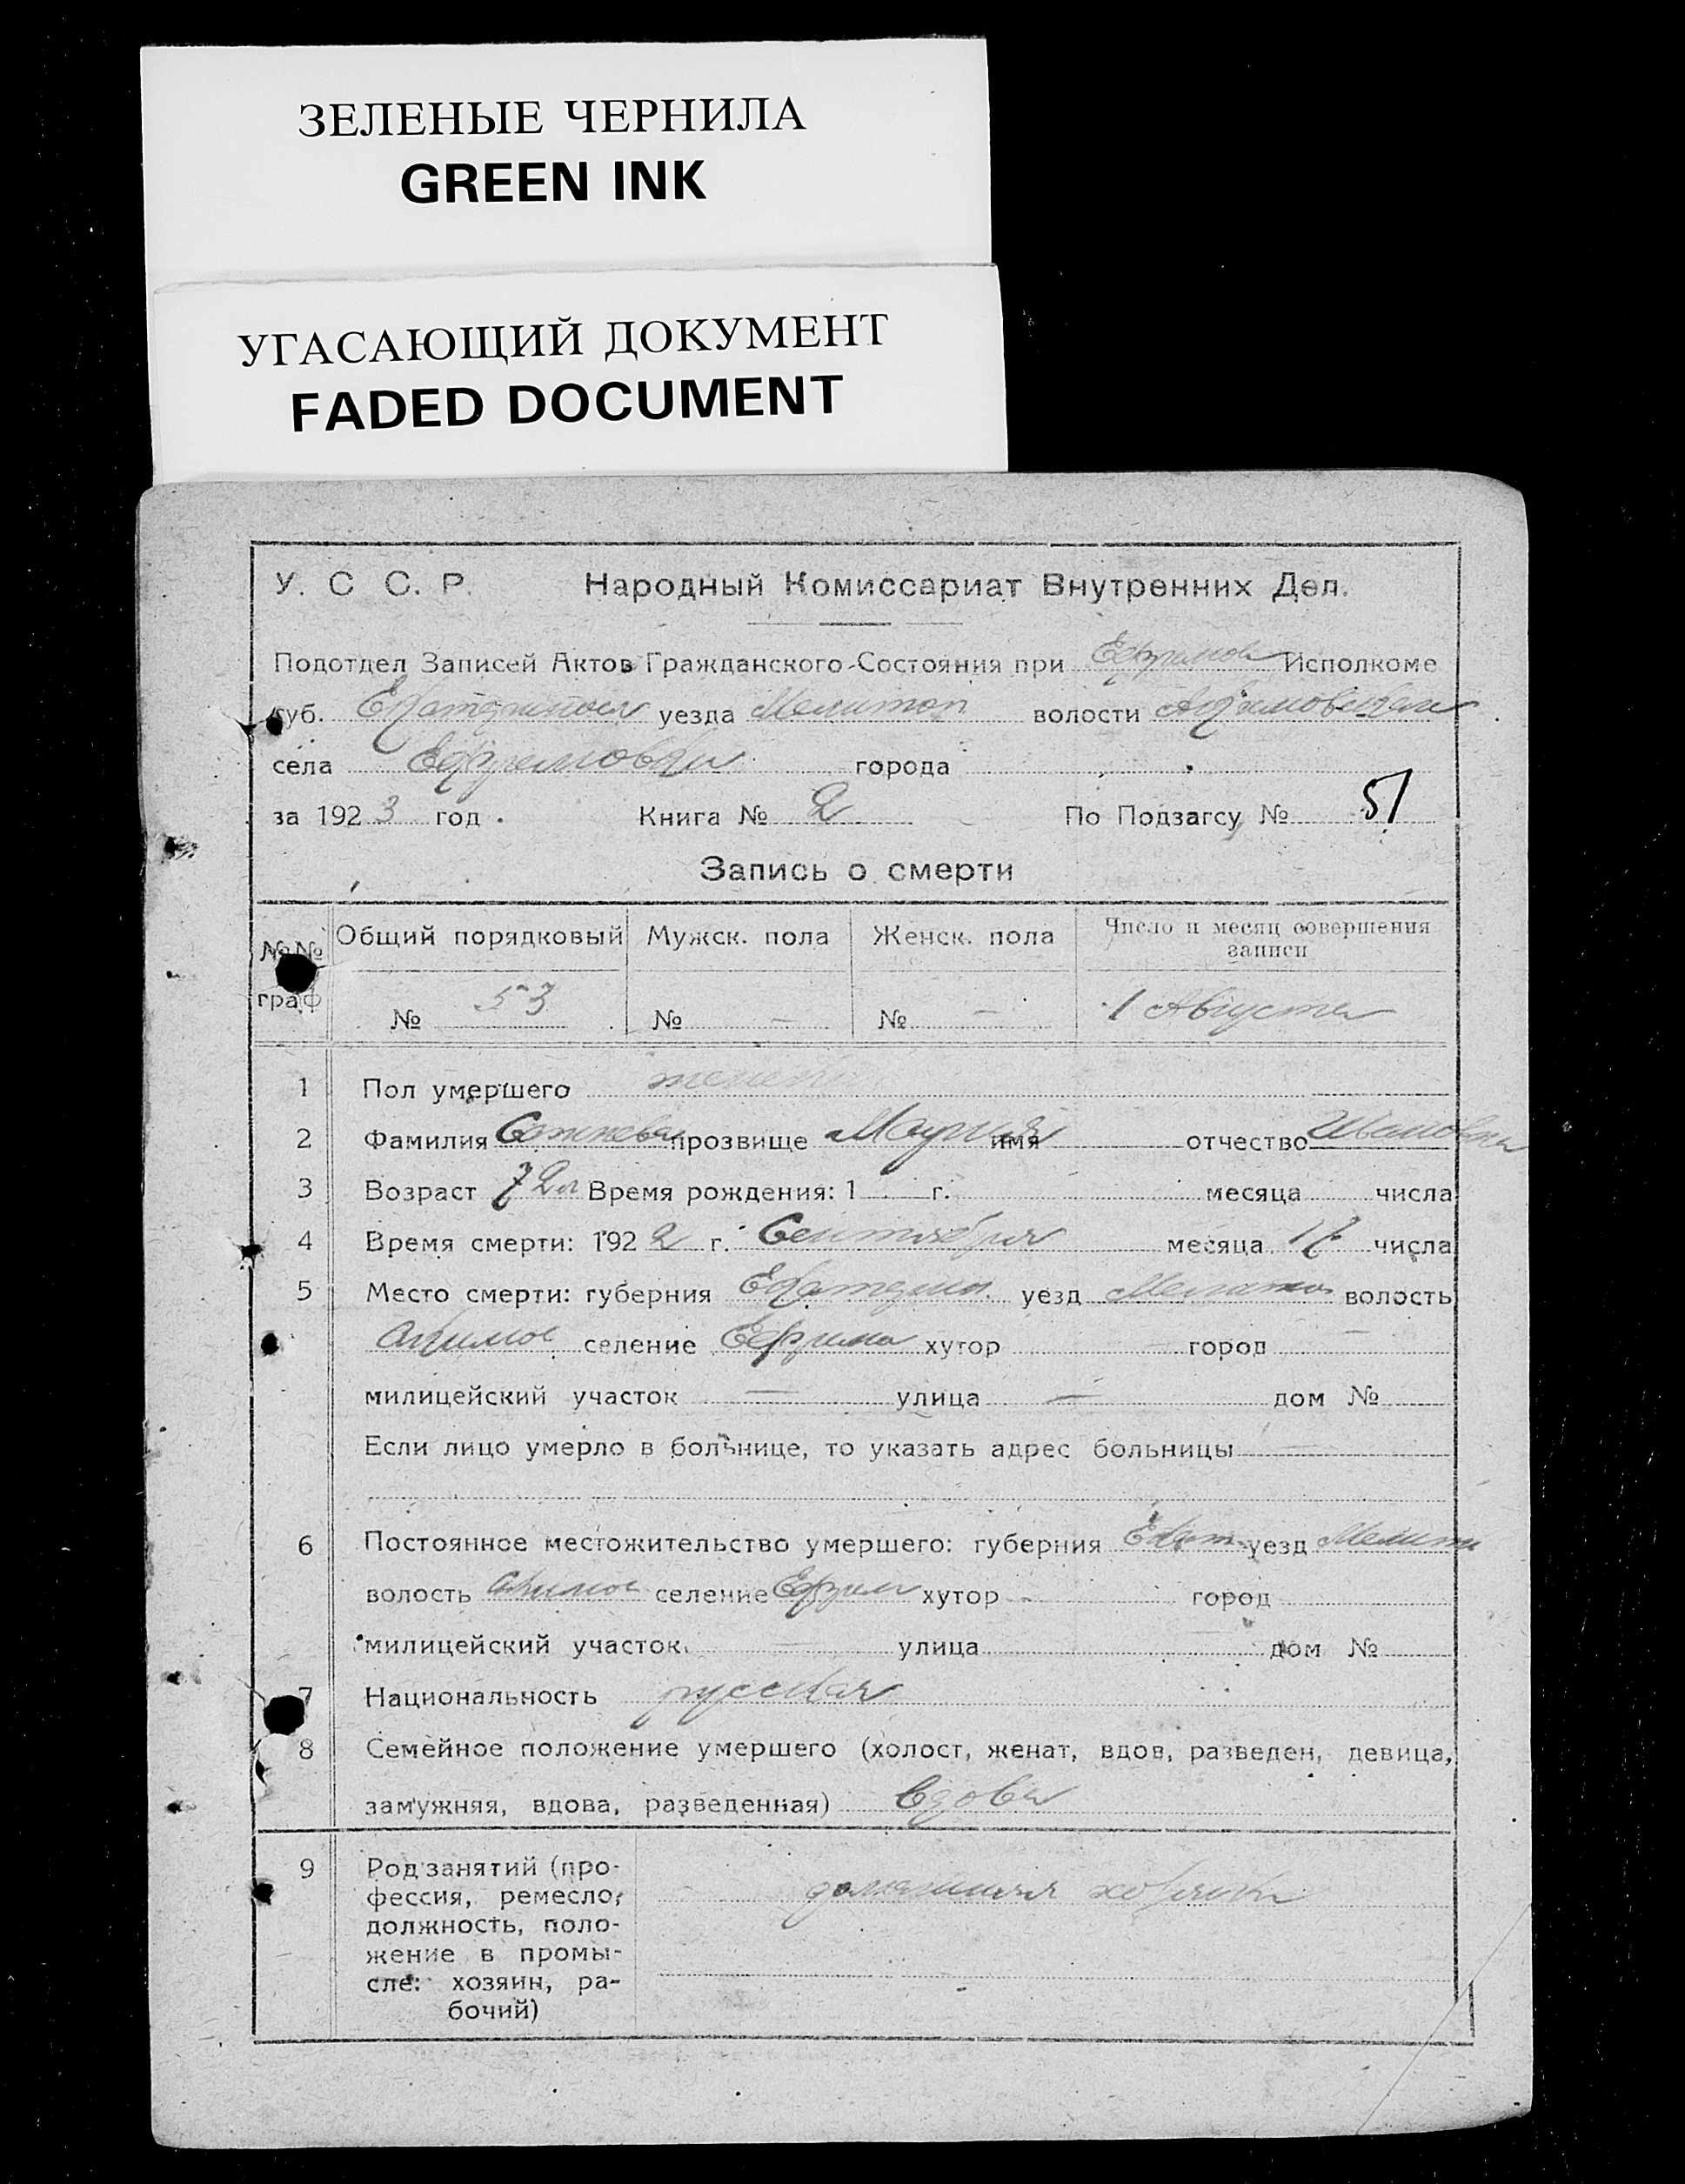 ЗЕЛЕНЫЕ ЧЕРНИЛА
GREEN INK
УГАСАЮЩИЙ ДОКУМЕНТ
FADED DOCUMENT
У. С С. Р. Народный Комиссариат Внутренних Дел.
Подотдел Записей Актов Гражданского Состояния при Исполкоме
губ. уезда Мелитоп волости
села Ефремовки города
за 1923 год. Книга № 2 По Подзагсу № 51
Запись о смерти
№№ граф Общий порядковый Мужск. пола Женск. пола Число и месяц совершения записи
№ 53 № — № — 1 Августа
1 Пол умершего женск
2 Фамилия прозвище Мария имя отчество Ивановна
3 Возраст 72 л Время рождения: 1 г. месяца числа
4 Время смерти: 1922 г. Сентября месяца 17 числа
5 Место смерти: губерния уезд волость
Акимов селение хутор город —
милицейский участок — улица — дом №
Если лицо умерло в больнице, то указать адрес больницы —
6 Постоянное местожительство умершего: губерния Екат. уезд Мелит
волость Акимов селение Ефрем хутор город
милицейский участок улица дом №
7 Национальность русская
8 Семейное положение умершего (холост, женат, вдов, разведен, девица,
замужняя, вдова, разведенная) вдова
9 Род занятий (про-
фессия, ремесло, домашняя хозяйка
должность, поло-
жение в промы-
сле: хозяин, ра-
бочий)